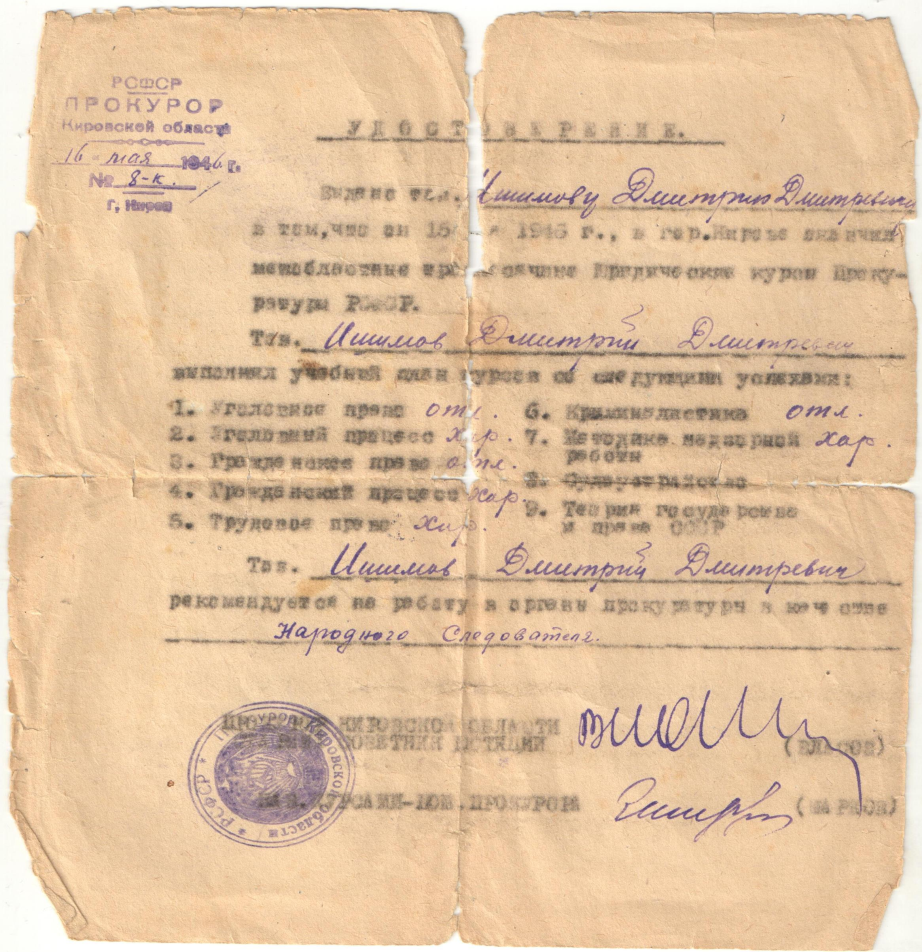 РСФСР
ПРОКУРОР
Кировской области
16 мая 1946 г.
№ 8-к.
г. Киров
УДОСТОВЕРЕНИЕ.
Выдано тов. Ишимову Дмитрию Дмитревичу
в том, что он 15 мая 1946 г., в гор. Кирове окончил
межобластные юридические курсы Проку-
ратуры РСФСР.
Тов. Ишимов Дмитрий Дмитревич
выполнил учебный план курсов со следующими успехами:
1. Уголовное право отл.
2. Уголовный процесс хор.
3. Гражданское право отл.
4. Гражданский процесс хор.
5. Трудовое право хор.
6. Криминалистика отл.
7. Методика надзорной хор.
работы
8. Судоустройство
9. Теория государства
и права СССР
Тов. Ишимов Дмитрий Дмитревич
рекомендуется на работу в органы прокуратуры в качестве
Народного Следователя.
ПРОКУРОР КИРОВСКОЙ ОБЛАСТИ
СОВЕТНИК ЮСТИЦИИ (ВЛАСОВ)
ЗАВ. КУРСАМИ-ПОМ. ПРОКУРОРА
РСФСР * ПРОКУРОР Кировской области *